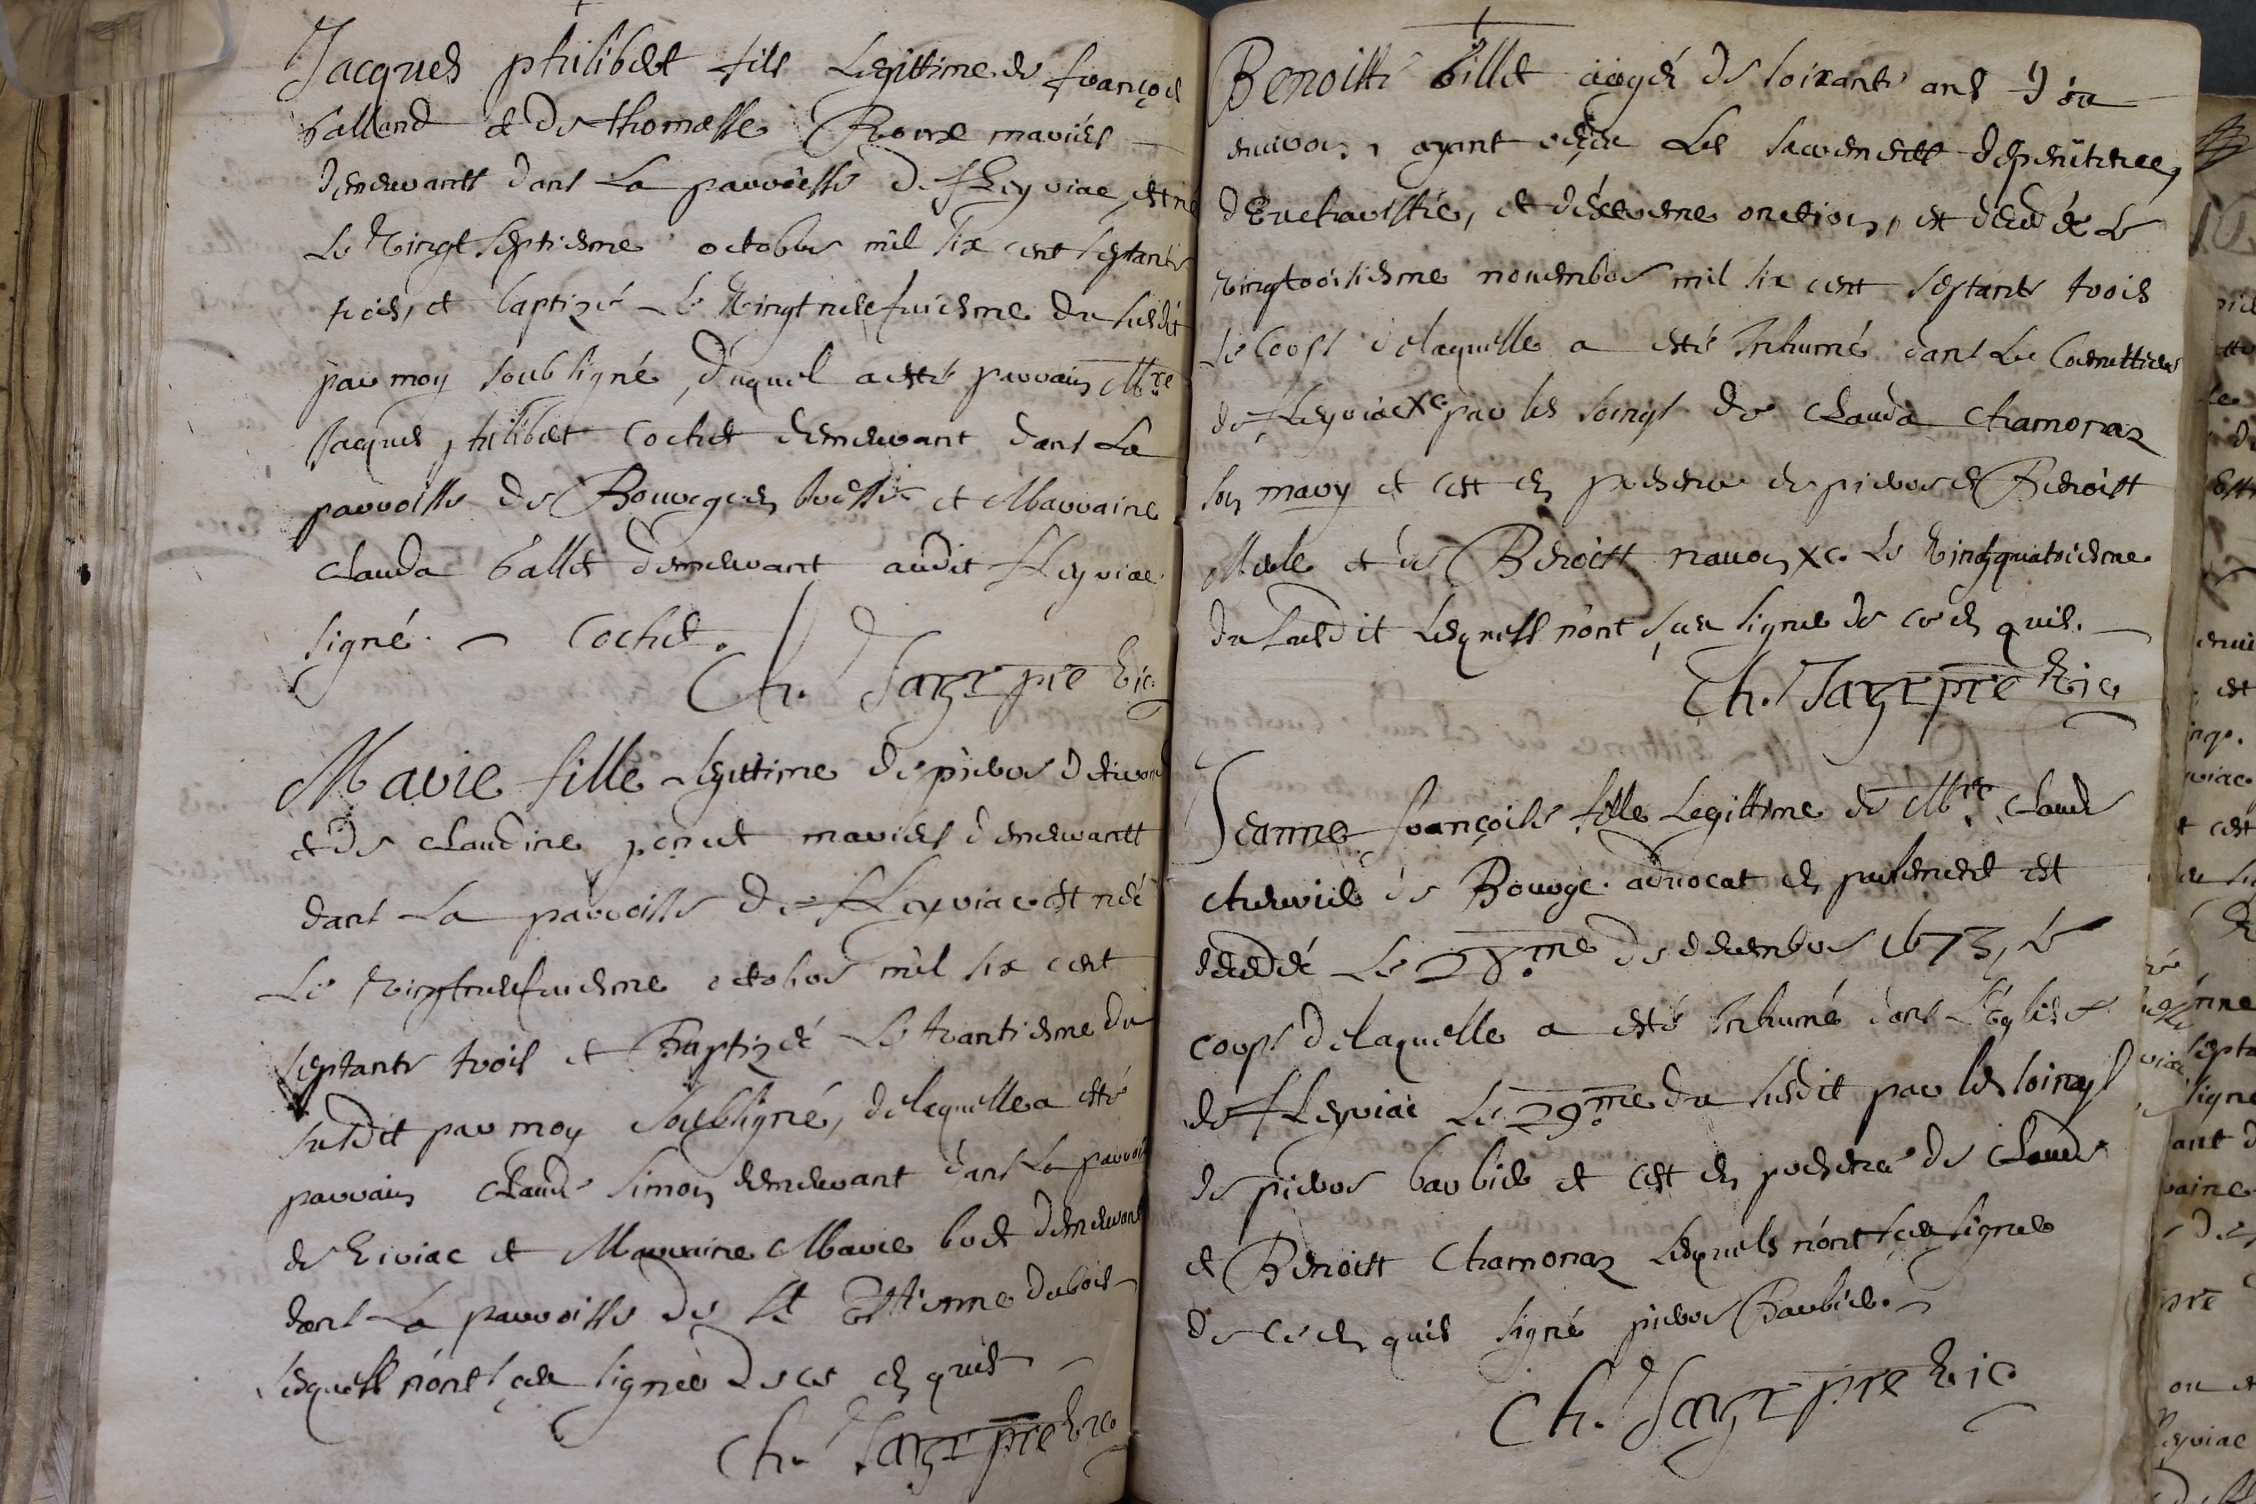 Jacques philibert fils Legittime de françois
Galland et de thomasse Rome mariés
demeurantt dans La parroisse de fleyriac, est né
Le vingt septiesme octobre mil six cent septante
trois, et baptizé Le vingt neufuiesme du susdit
par moy soubsigné, duquel a esté parrain Mre
Jaques philibert Cochet demeurant dans La
parroisse de Bourgen bresse et Marraine
Clauda Gallet demeurant audit fleyriac
signé. Cochet.
Ch. pre vic.
Marie fille Legittime de pierre
et de Claudine mariés demeurantt
dans La parroisse de fleyriac est née
Le vingtneufuiesme octobre mil six cent
septante trois et Baptizée Le trantiesme du
susdit par moy soubsigné, de laquelle a esté
parrain Claude Simon demeurant dans La parroisse
de viriac et Marraine Marie demeurant
dans La parroisse de St Estienne dubois
lesquells n'ont sçeu signer de ce en quis
Ch. pre vic.
Benoitte billet aagée de soixante ans d'ou
environ, ayant reçeu Les sacrementt de penitence,
d'Eucharistie, et d'extreme onction, est decedée Le
vingtroisiesme nouembre mil six cent septante trois
Le Corps de laquelle a esté Inhumé dans Le Coemettiere
de fleyriac xc. par les soings de Claude Chamonaz
son mary et c'est en presence de pierre et Benoist
Merle et de Benoist xc. Le vingtquatriesme
du susdit Lesquells n'ont sçeu signer de ce en quis.
Ch. pre vic.
Jeanne françoise fille Legittime de Mre Claude
de Bourge advocat en parlement est
decedée Le 28.me de decembre 1673, Le
corps de laquelle a esté Inhumé dans l'Eglise
de fleyriac Le 29.me du susdit par les soings
de pierre barbier et c'est en presence de Claude
et Benoist Chamonaz Lesquels n'ont sçeu signer
de ce en quis signé pierre Barbier.
Ch. pre vic.